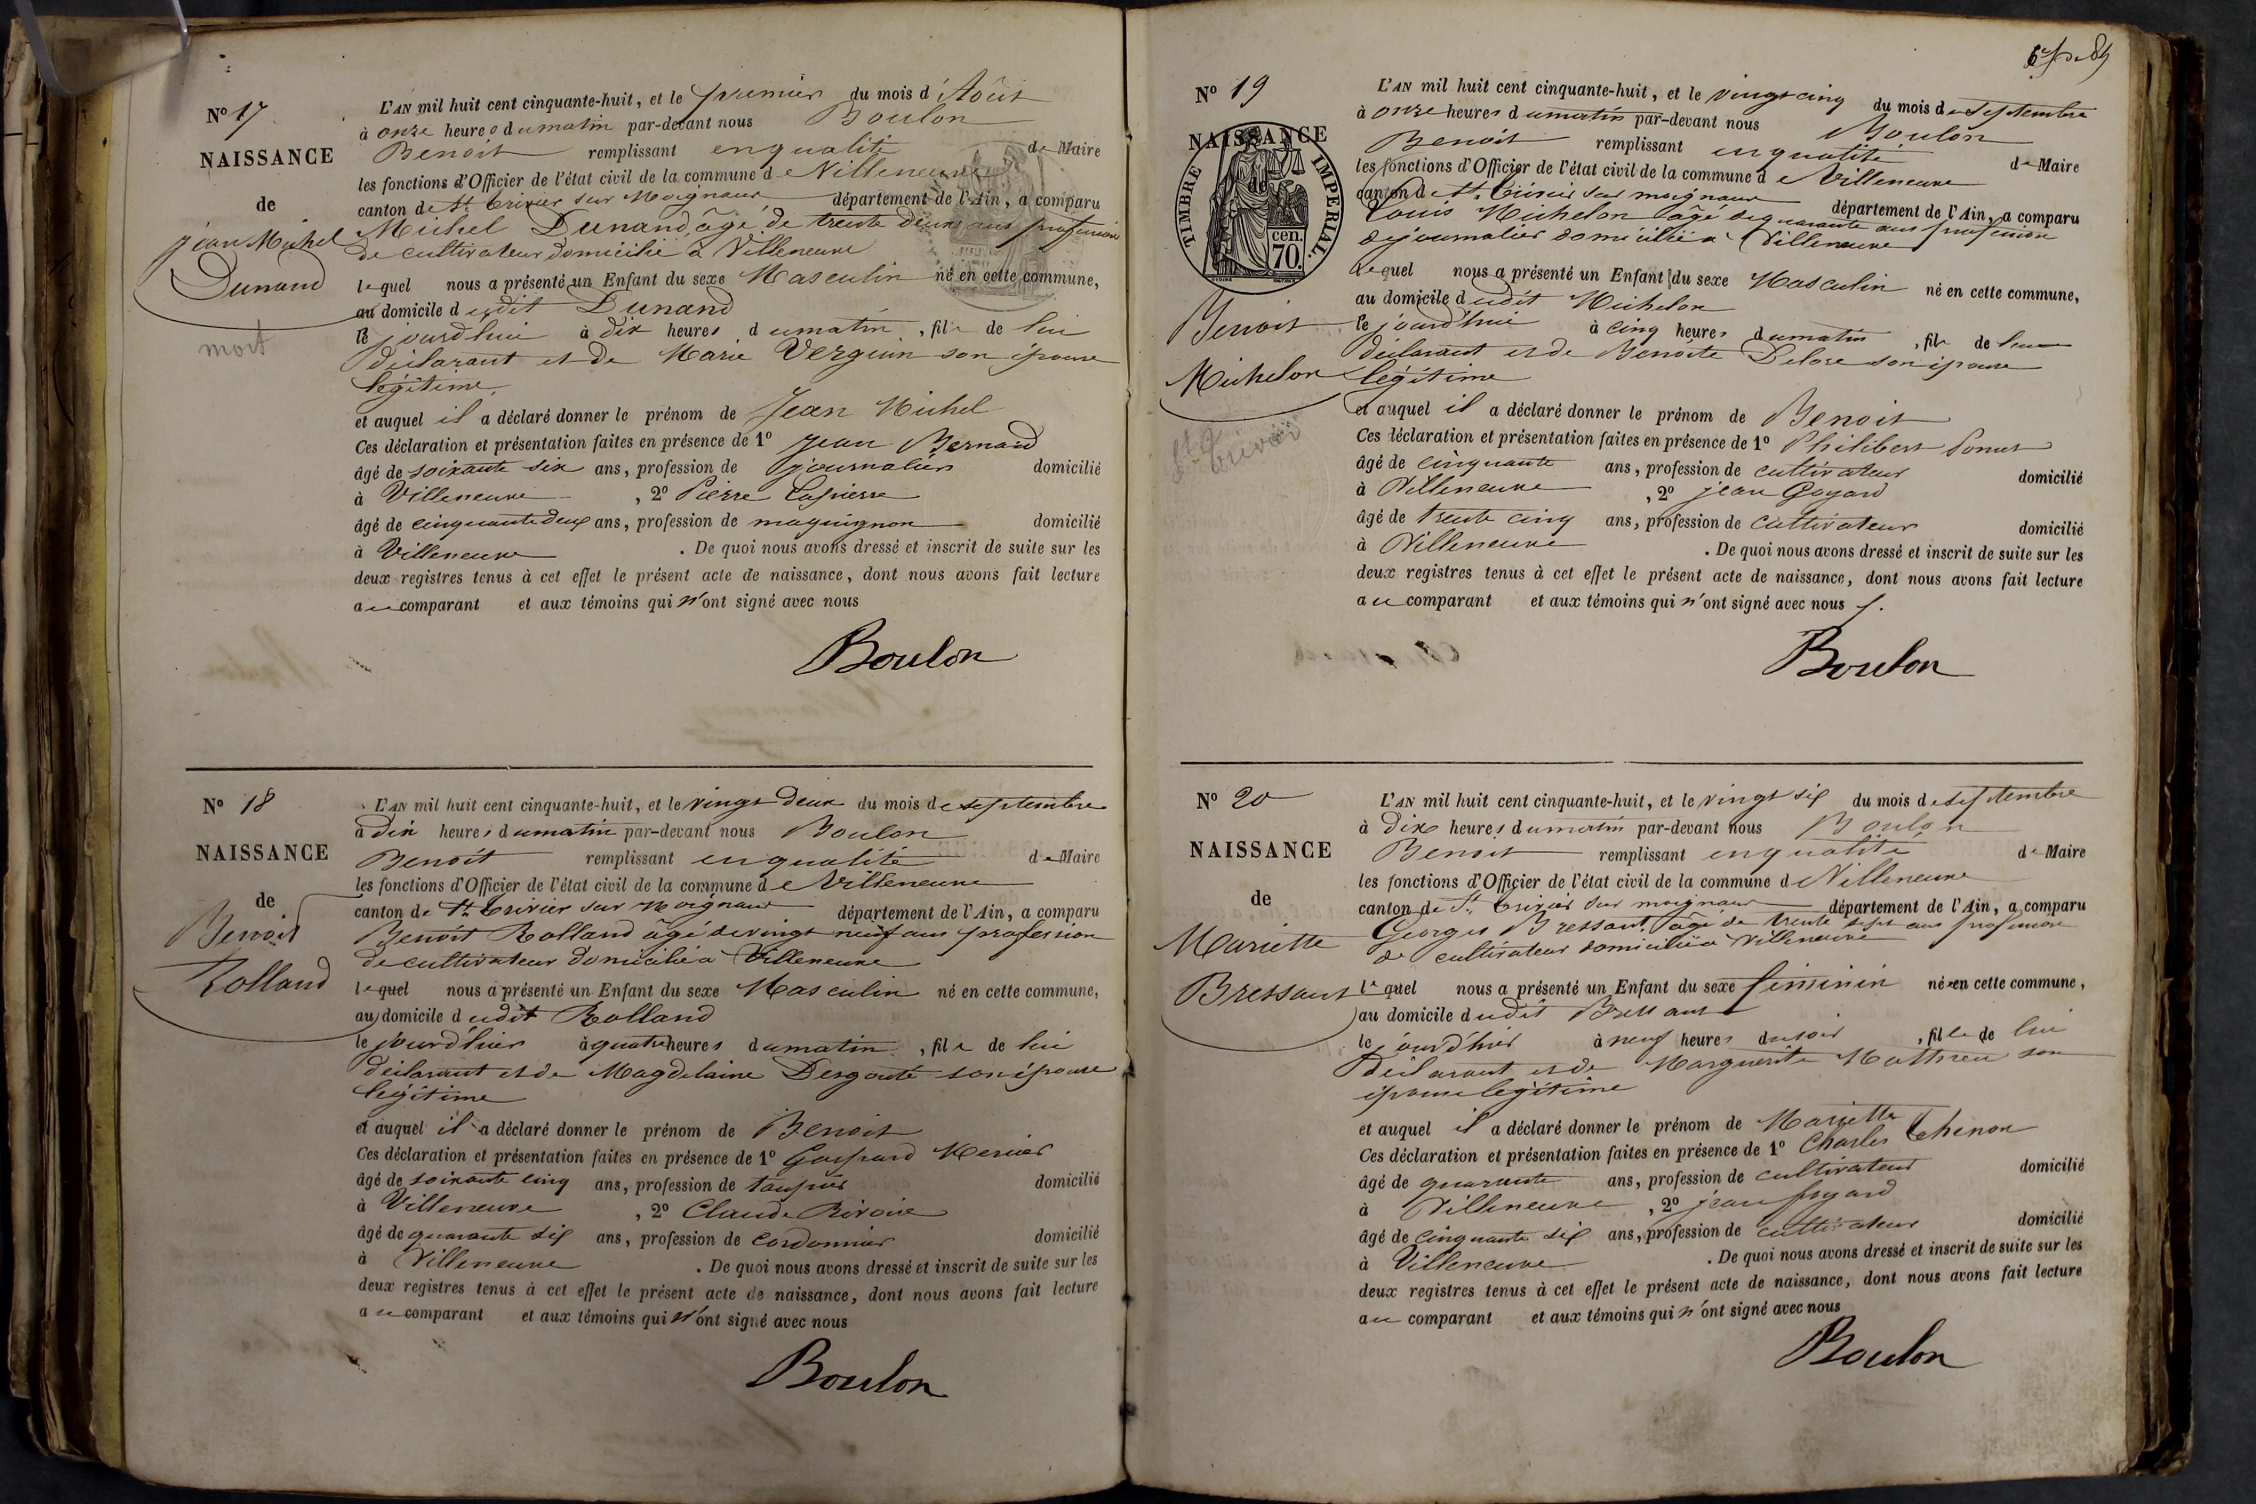 N° 17
NAISSANCE
de
jean Michel
Dunand
mort
L'AN mil huit cent cinquante-huit, et le premier du mois d'Août
à onze heures du matin par-devant nous Boulon
Benoit remplissant en qualité de Maire
les fonctions d'Officier de l'état civil de la commune de Villeneuve
canton de St. trivier sur Moignans département de l'Ain, a comparu
Michel Dunand âgé de trente deux ans profession
de cultivateur domicilié à Villeneuve
lequel nous a présenté un Enfant du sexe Masculin né en cette commune,
au domicile dudit Dunand
le jourd'hui à dix heures du matin, fils de lui
déclarant et de Marie Verguin son épouse
légitime
et auquel il a déclaré donner le prénom de Jean Michel
Ces déclaration et présentation faites en présence de 1° jean Bernard
âgé de soixante six ans, profession de journalier domicilié
à Villeneuve, 2° Pierre Lapierre
âgé de cinquante deux ans, profession de maquignon domicilié
à Villeneuve. De quoi nous avons dressé et inscrit de suite sur les
deux registres tenus à cet effet le présent acte de naissance, dont nous avons fait lecture
au comparant et aux témoins qui n'ont signé avec nous
Boulon
N° 18
NAISSANCE
de
Benoit
Rolland
L'AN mil huit cent cinquante-huit, et le vingt deux du mois de septembre
à dix heures du matin par-devant nous Boulon
Benoit remplissant en qualité de Maire
les fonctions d'Officier de l'état civil de la commune de Villeneuve
canton de St. trivier sur Moignans département de l'Ain, a comparu
Benoit Rolland âgé de vingt neuf ans profession
de cultivateur domicilié à Villeneuve
lequel nous a présenté un Enfant du sexe Masculin né en cette commune,
au domicile dudit Rolland
le jourd'hui à quatre heures du matin, fils de lui
déclarant et de Magdelaine Desgoute son épouse
légitime
et auquel il a déclaré donner le prénom de Benoit
Ces déclaration et présentation faites en présence de 1° Gaspard Mercier
âgé de soixante cinq ans, profession de taupier domicilié
à Villeneuve, 2° Claude Rivoire
âgé de quarante six ans, profession de cordonnier domicilié
à Villeneuve. De quoi nous avons dressé et inscrit de suite sur les
deux registres tenus à cet effet le présent acte de naissance, dont nous avons fait lecture
au comparant et aux témoins qui n'ont signé avec nous
Boulon
N° 19
NAISSANCE
de
TIMBRE IMPERIAL.
70 cen.
Benoit
Michelon
St. trivier
L'AN mil huit cent cinquante-huit, et le vingt cinq du mois de septembre
à onze heures du matin par-devant nous Boulon
Benoit remplissant en qualité de Maire
les fonctions d'Officier de l'état civil de la commune de Villeneuve
canton de St. trivier sur moignans département de l'Ain, a comparu
Louis Michelon âgé de quarante ans profession
de journalier domicilié à Villeneuve
lequel nous a présenté un Enfant du sexe Masculin né en cette commune,
au domicile dudit Michelon
le jourd'hui à cinq heures du matin, fils de lui
déclarant et de Benoite Delore son épouse
légitime
et auquel il a déclaré donner le prénom de Benoit
Ces déclaration et présentation faites en présence de 1° Philibert
âgé de cinquante ans, profession de cultivateur domicilié
à Villeneuve, 2° jean Goyard
âgé de trente cinq ans, profession de cultivateur domicilié
à Villeneuve. De quoi nous avons dressé et inscrit de suite sur les
deux registres tenus à cet effet le présent acte de naissance, dont nous avons fait lecture
au comparant et aux témoins qui n'ont signé avec nous
Boulon
N° 20
NAISSANCE
de
Mariette
Bressant
L'AN mil huit cent cinquante-huit, et le vingt six du mois de septembre
à dix heures du matin par-devant nous Boulon
Benoit remplissant en qualité de Maire
les fonctions d'Officier de l'état civil de la commune de Villeneuve
canton de St. trivier sur moignans département de l'Ain, a comparu
Georges Bressant âgé de trente sept ans profession
de cultivateur domicilié à Villeneuve
lequel nous a présenté un Enfant du sexe féminin né en cette commune,
au domicile dudit Bressant
le jourd'hier à neuf heures du soir, fille de lui
déclarant et de Marguerite Mathieu son
épouse légitime
et auquel il a déclaré donner le prénom de Mariette
Ces déclaration et présentation faites en présence de 1° Charles Thenon
âgé de quarante ans, profession de cultivateur domicilié
à Villeneuve, 2° jean
âgé de cinquante six ans, profession de cultivateur domicilié
à Villeneuve. De quoi nous avons dressé et inscrit de suite sur les
deux registres tenus à cet effet le présent acte de naissance, dont nous avons fait lecture
au comparant et aux témoins qui n'ont signé avec nous
Boulon